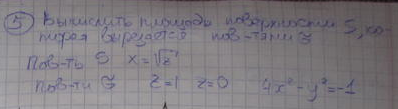 ⑤ Вычислить площадь поверхности S, ко-
торая вырезается пов-тями Z
Пов-ть S x = √z
Пов-ти Z z=1 z=0 4x² - y² = -1